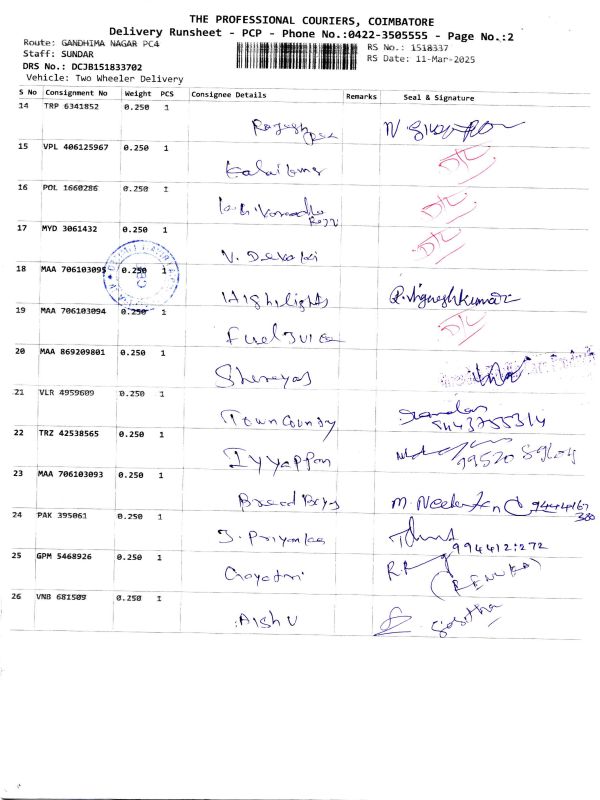 THE PROFESSIONAL COURIERS, COIMBATORE
Delivery Runsheet - PCP - Phone No.:0422-3505555 - Page No.:2
Route: GANDHIMA NAGAR PC4 RS No.: 1518337
Staff: SUNDAR RS Date: 11-Mar-2025
DRS No.: DCJB151833702
Vehicle: Two Wheeler Delivery
S No Consignment No Weight PCS Consignee Details Remarks Seal & Signature
14 TRP 6341852 0.250 1
15 VPL 406125967 0.250 1
Kalaikumar D/L
16 POL 1660286 0.250 1
D/L
17 MYD 3061432 0.250 1
V. Devaki D/L
18 MAA 706103095 0.250 1
Highlights R.Vigneshkumar
19 MAA 706103094 0.250 1
Fuel Juice D/L
20 MAA 869209801 0.250 1
Shereyas
21 VLR 4959609 0.250 1
Town County
22 TRZ 42538565 0.250 1
Iyyappan
23 MAA 706103093 0.250 1
Bread Boys
24 PAK 395061 0.250 1
J. Priyanka
25 GPM 5468926 0.250 1
Gayatri (RENUKA)
26 VNB 681509 0.250 1
Aishu